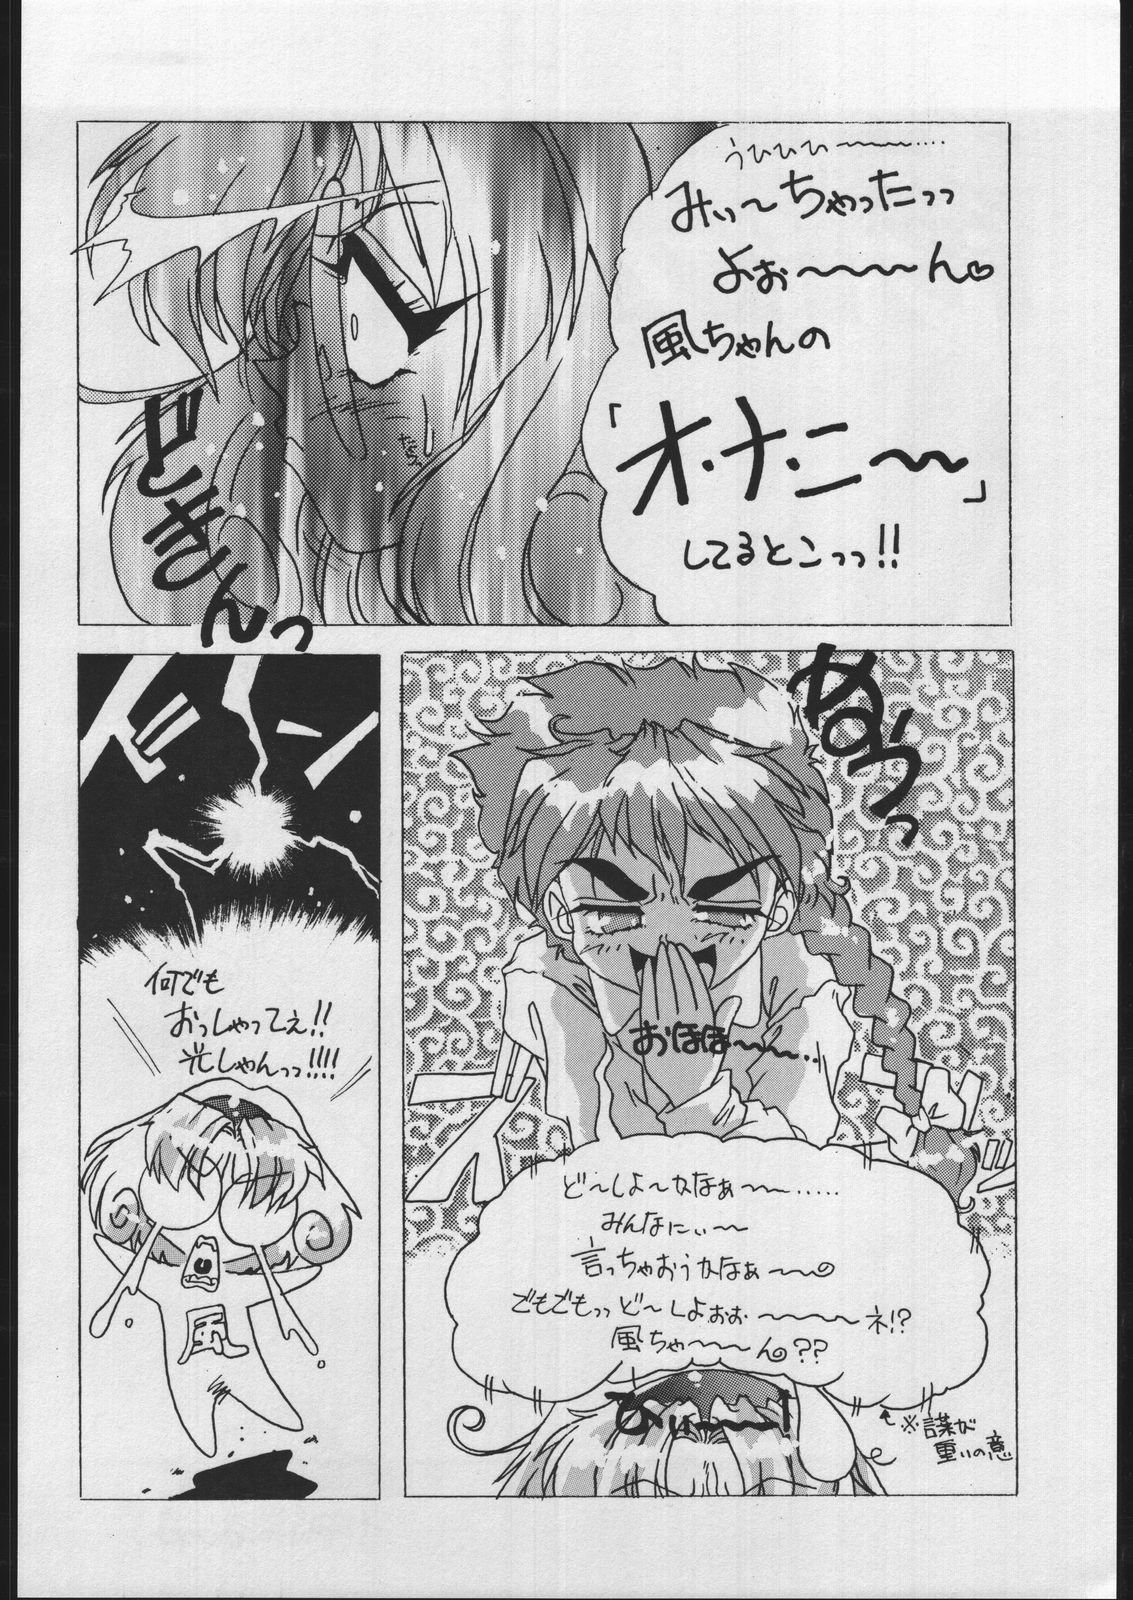 うひひひ〜〜〜....
みぃ〜ちゃったっっ
よぉ〜〜〜〜ん♡
風ちゃんの
「オ・ナ・ニ〜〜」
してるとこっっ!!
たらっ
どきんっ
めらっっ
おほほ〜〜〜...
ど〜しよ〜かなぁ〜〜.....
みんなにぃ〜
言っちゃおうかなぁ〜〜
でもでもっっど〜しよぉぉ〜〜〜〜ネ!?
風ちゃ〜〜〜ん??
ひぃ〜〜〜!
※謀が
重いの意
ドーン
何でも
おっしゃってぇ!!
光しゃんっっ!!!!
風